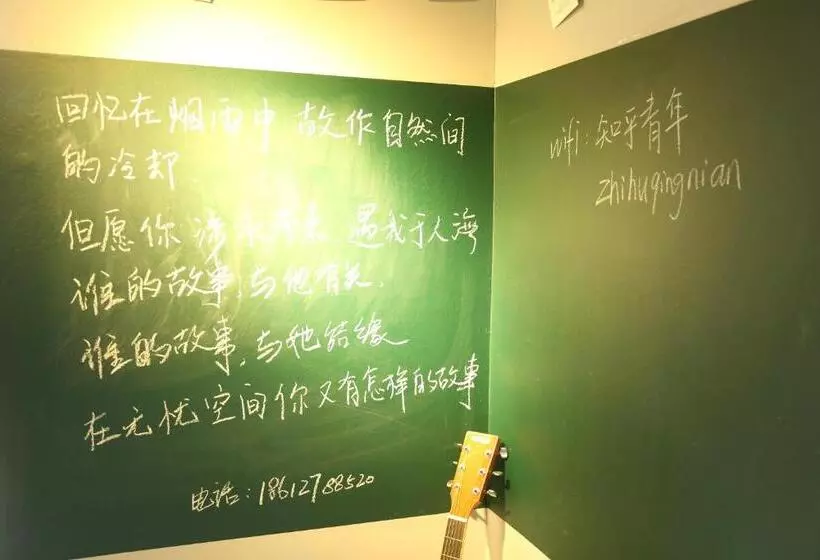 回忆在烟雨中 故作自然间
的冷却
但愿你 遇我于人海
谁的故事,与他有关,
谁的故事,与她结缘
在无忧空间你又有怎样的故事
电话:18612788520
wifi:知乎青年
zhihuqingnian